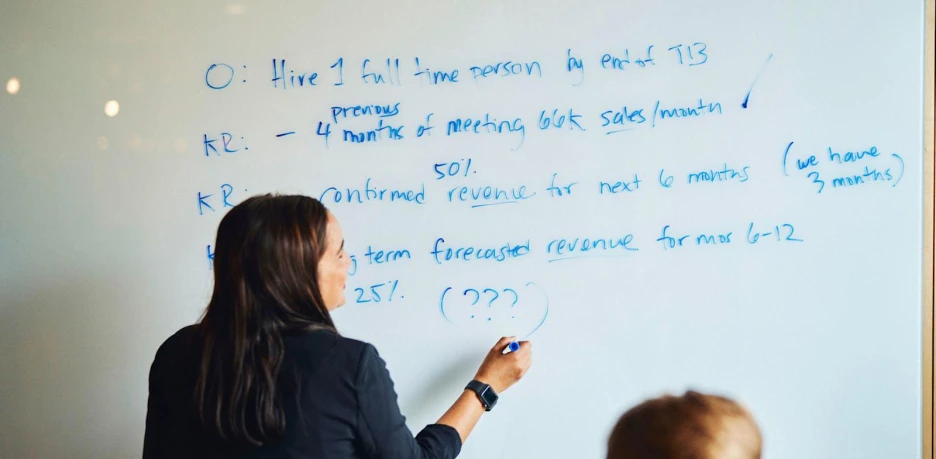 O: Hire 1 full time person by end of T13
previous
KR: - 4 months of meeting 66K sales/month ✓
50%
KR: confirmed revenue for next 6 months (we have 3 months)
term forecasted revenue for mos 6-12
25% (???)